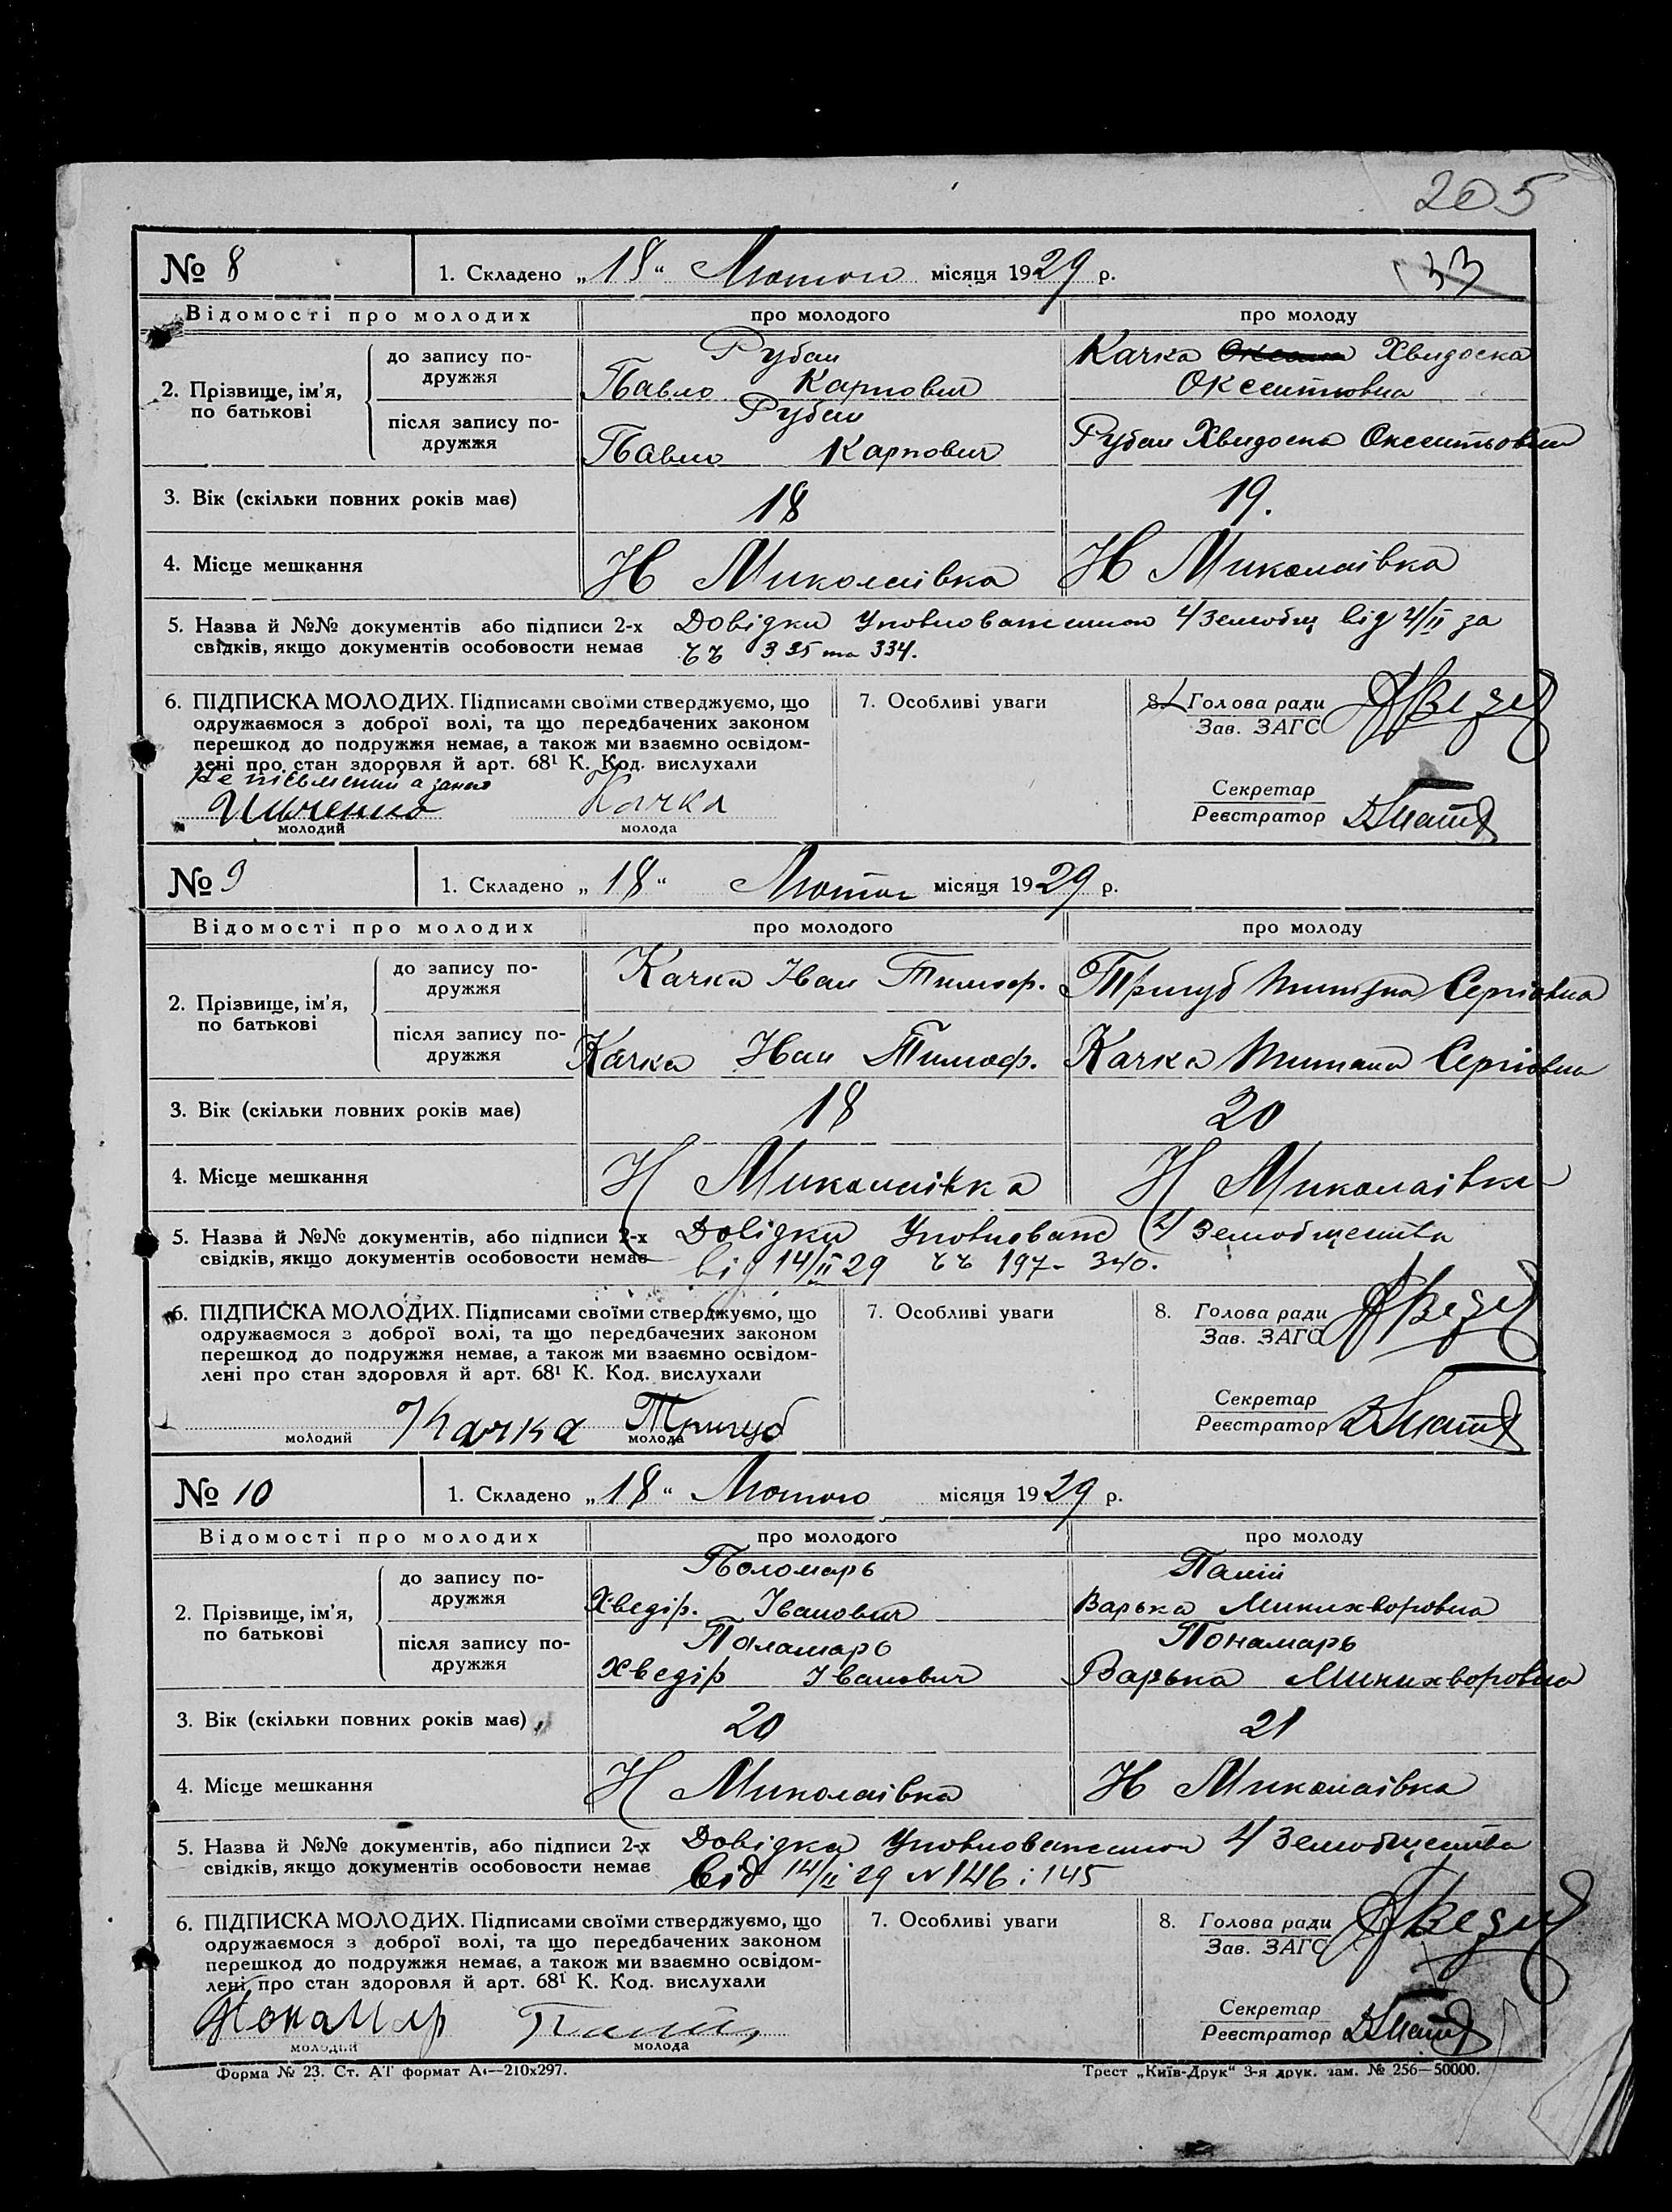 205
33
№ 8
1. Складено „18“ Лютого місяця 1929 р.
Відомості про молодих
про молодого
про молоду
2. Прізвище, ім’я, по батькові
до запису подружжя
Рубан
Павло Карпович
Качка Хвидоска
Оксентьовна
після запису подружжя
Рубан
Павло Карпович
Рубан Хвидоска Оксентьовна
3. Вік (скільки повних років має)
18
19.
4. Місце мешкання
Н Миколаівка
Н Миколаівка
5. Назва й №№ документів або підписи 2-х
свідків, якщо документів особовости немає
Довідки Уповноваженного 4 Земобщ від 4/II за
335 та 334.
6. ПІДПИСКА МОЛОДИХ. Підписами своїми стверджуємо, що
одружаємося з доброї волі, та що передбачених законом
перешкод до подружжя немає, а також ми взаємно освідом-
лені про стан здоровля й арт. 68¹ К. Код. вислухали
Не письменний а за него
Качка
молодий
молода
7. Особливі уваги
8. Голова ради
Зав. ЗАГС
Секретар
Реєстратор
№ 9
1. Складено „18“ місяця 1929 р.
Відомості про молодих
про молодого
про молоду
2. Прізвище, ім’я,
по батькові
до запису по-
дружжя
Качка Иван Тимоф.
Тригуб Сергіовна
після запису по-
дружжя
Качка Иван Тимоф.
Качка Титяна Сергіовна
3. Вік (скільки повних років має)
18
20
4. Місце мешкання
Н Миколаівка
Н Миколаівка
5. Назва й №№ документів, або підписи 2-х
свідків, якщо документів особовости немає
Довідки Уповноваж 4 Земобщества
від 14/II 29 197 - 340.
6. ПІДПИСКА МОЛОДИХ. Підписами своїми стверджуємо, що
одружаємося з доброї волі, та що передбачених законом
перешкод до подружжя немає, а також ми взаємно освідом-
лені про стан здоровля й арт. 68¹ К. Код. вислухали
Качка
Тригуб
молодий
молода
7. Особливі уваги
8. Голова ради
Зав. ЗАГС
Секретар
Реєстратор
№ 10
1. Складено „18“ Лютого місяця 1929 р.
Відомості про молодих
про молодого
про молоду
2. Прізвище, ім’я,
по батькові
до запису по-
дружжя
Поломарь
Хведір. Іванович
Палій
Варька Миникворовна
після запису по-
дружжя
Паламарь
Хведір Іванович
Понамарь
Варька Миникворовна
3. Вік (скільки повних років має)
20
21
4. Місце мешкання
Н Миколаівка
Н Миколаівка
5. Назва й №№ документів, або підписи 2-х
свідків, якщо документів особовости немає
Довідка Уповноваженного 4 Земобщества
від 14/II 29 N 146 і 145
6. ПІДПИСКА МОЛОДИХ. Підписами своїми стверджуємо, що
одружаємося з доброї волі, та що передбачених законом
перешкод до подружжя немає, а також ми взаємно освідом-
лені про стан здоровля й арт. 68¹ К. Код. вислухали
Палий
молодий
молода
7. Особливі уваги
8. Голова ради
Зав. ЗАГС
Секретар
Реєстратор
Форма № 23. Ст. АТ формат А₄—210х297.
Трест „Київ-Друк“ 3-я друк. зам. № 256—50000.